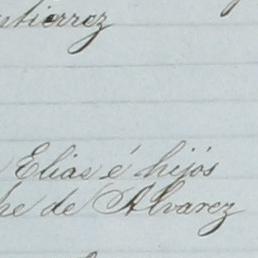 utierrez
Elias é hijós
he de Alvarez